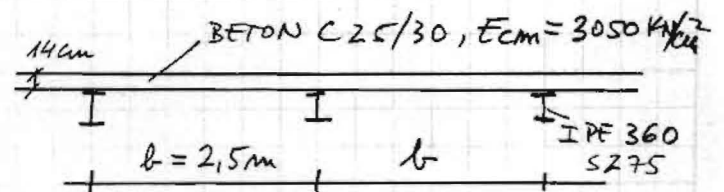 BETON C 25/30, Ecm = 3050 KN/cm²
14cm
IPE 360
S275
b = 2,5m
b